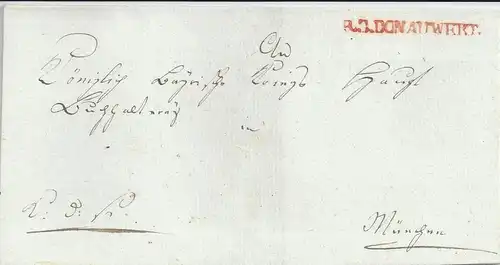 R.3.DONAUWERT.
An
Königlich Bayrische Kriegs Haupt
Buchhalterey
in
K. D. S.
München